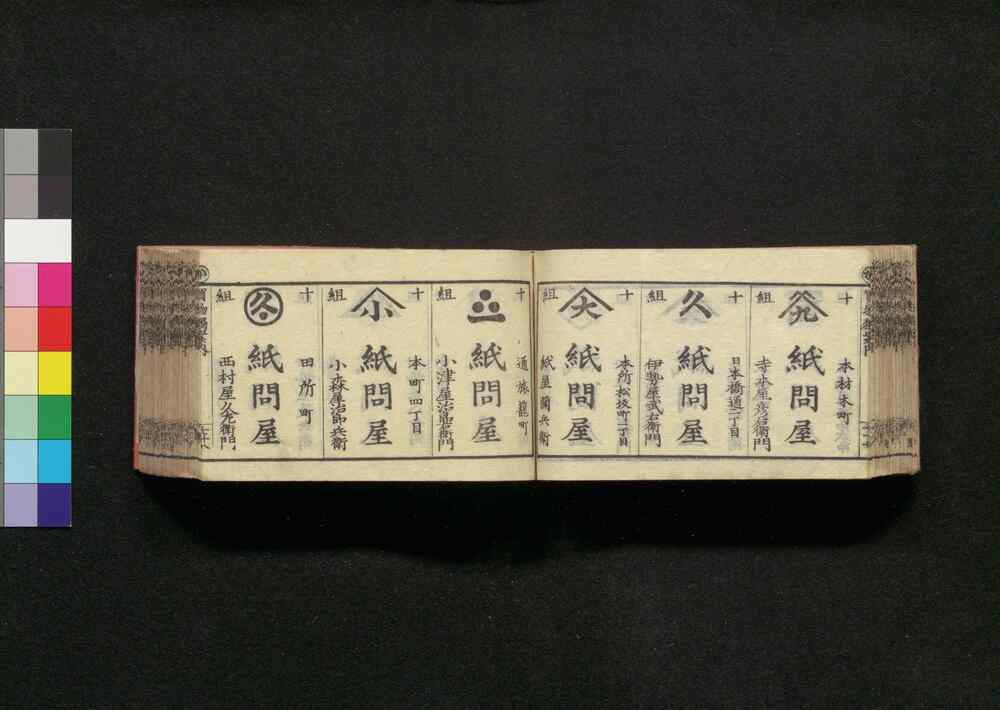 十組
本材木町
紙問屋
十組
日本橋通二丁目
久
紙問屋
伊勢屋武右衛門
十組
本所松坂町一丁目
大
紙問屋
紙屋蘭兵衛
十組
通旅籠町
紙問屋
十組
本町四丁目
小
紙問屋
小森屋治郎兵衛
十組
田所町
久
紙問屋
西村屋久左衛門